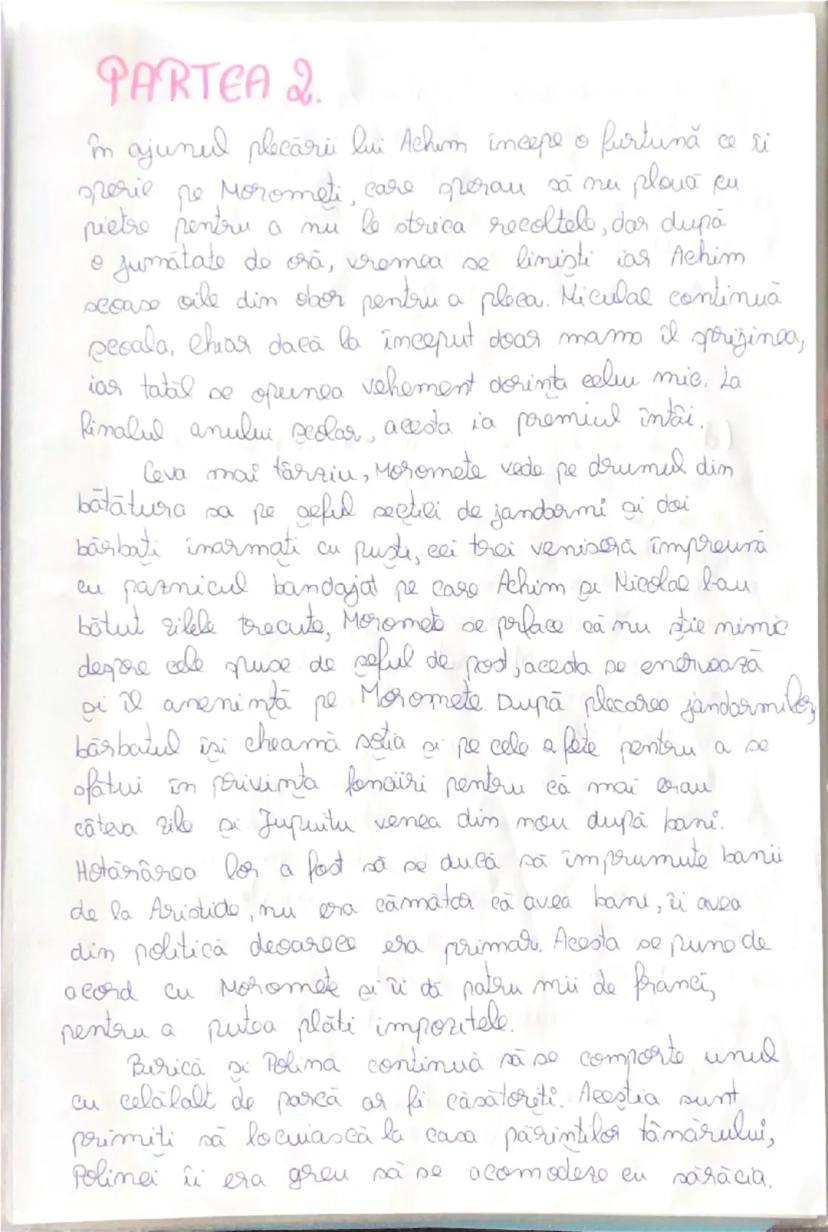 PARTEA 2.
În ajunul plecării lui Achim începe o furtună ce îi
sperie pe Moromeți, care sperau să nu plouă cu
pietre pentru a nu le strica recoltele, dar după
o jumătate de oră, vremea se liniști iar Achim
scoase oile din obor pentru a pleca. Niculae continuă
școala, chiar dacă la început doar mama îl sprijinea,
iar tatăl se opunea vehement dorința celui mic. La
finalul anului școlar, acesta ia premiul întâi.
Ceva mai târziu, Moromete vede pe drumul din
bătătura sa pe șeful secției de jandarmi și doi
bărbați înarmați cu puști, cei trei veniseră împreună
cu paznicul bandajat pe care Achim și Nicolae l-au
bătut zilele trecute, Moromete se preface că nu știe nimic
despre cele spuse de șeful de post, acesta se enervează
și îl amenință pe Moromete. După plecarea jandarmilor,
bărbatul își cheamă soția și pe cele 2 fete pentru a se
sfătui în privința fonciiri pentru că mai erau
câteva zile și Jupuitu venea din nou după bani.
Hotărârea lor a fost să se ducă să împrumute banii
de la Aristide, nu era cămătar că avea bani, îi avea
din politică deoarece era primar. Acesta se pune de
acord cu Moromete și îi dă patru mii de franci,
pentru a putea plăti impozitele.
Birică și Polina continuă să se comporte unul
cu celălalt de parcă ar fi căsătoriți. Aceștia sunt
primiți să locuiască la casa părinților tânărului,
Polinei îi era greu să se acomodeze cu sărăcia.